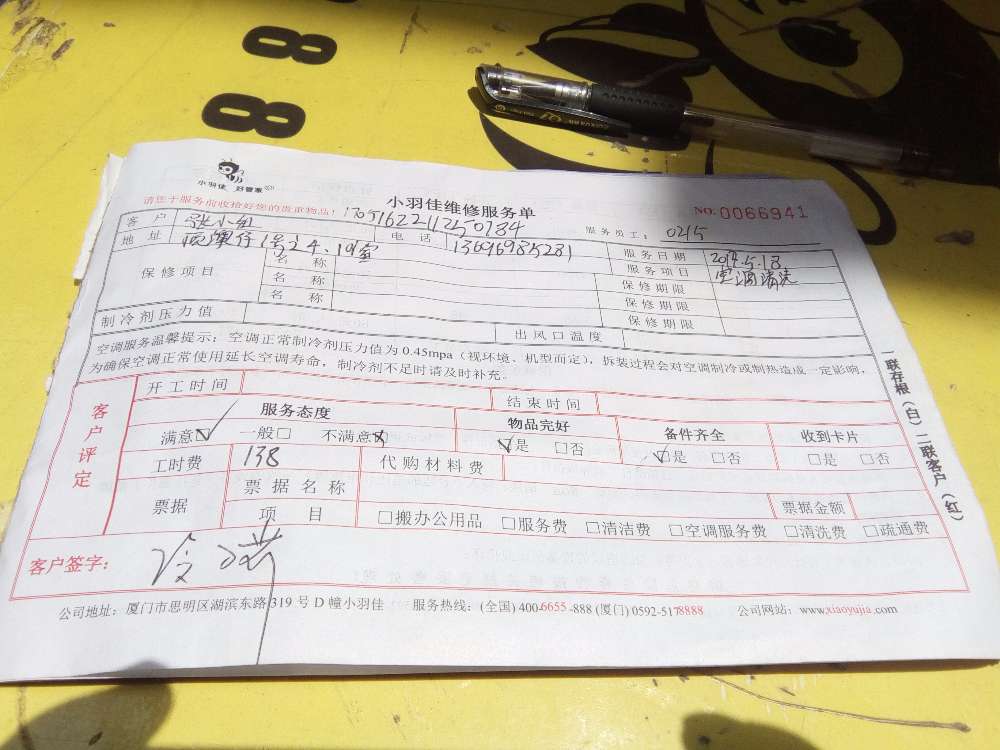 8
8
小羽佳 好管家
小羽佳维修服务单
请您于服务前收拾好您的贵重物品!
NO.0066941
服务员工: 0215
客户 张小姐
地址 1号 电话 13696985281 服务日期
保修项目 名称 服务项目 空调清洗
名称 保修期限
名称 保修期限
保修期限
制冷剂压力值 出风口温度
空调服务温馨提示:空调正常制冷剂压力值为0.45mpa(视环境、机型而定),拆装过程会对空调制冷或制热造成一定影响,
为确保空调正常使用延长空调寿命,制冷剂不足时请及时补充。
客户评定
开工时间 结束时间
服务态度 物品完好 备件齐全 收到卡片
满意□ 一般□ 不满意□ □是 □否 □是 □否 □是 □否
工时费 138 代购材料费
票据 票据名称 票据金额
项目 □搬办公用品 □服务费 □清洁费 □空调服务费 □清洗费 □疏通费
客户签字:
联存根(白)二联客户(红)
公司地址:厦门市思明区湖滨东路319号D幢小羽佳 服务热线:(全国)400-6655-888(厦门)0592-5178888 公司网站:www.xiaoyujia.com